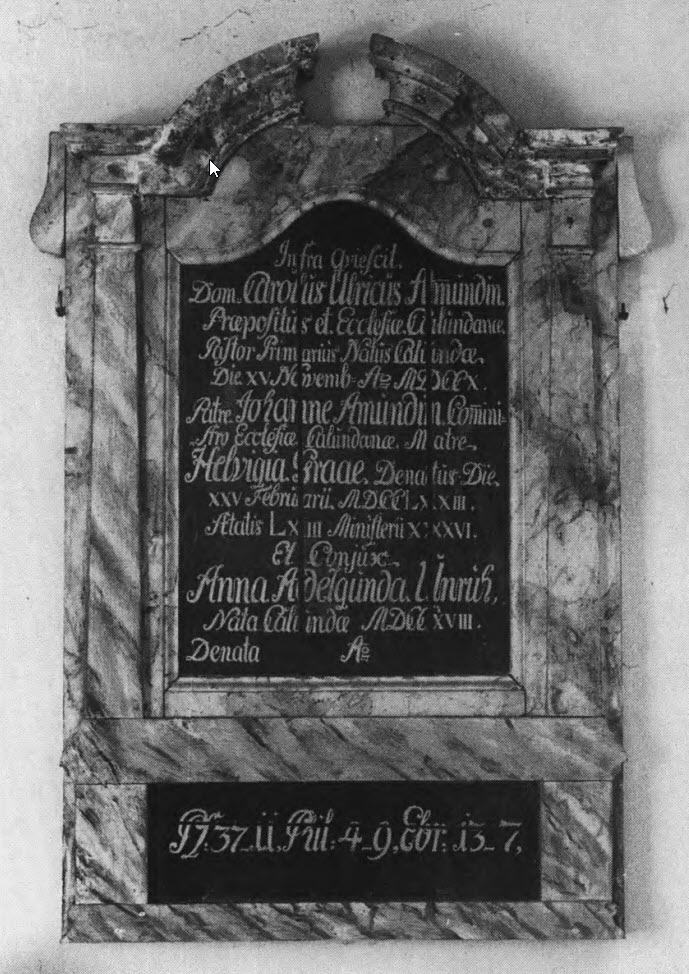 Infra Qviescit.
Dom. Carolus Ulricus Amundin.
Præpositus et. Ecclesiæ. Calundanæ.
Pastor Primarius Natus Calundæ.
Die XV Novemb. Ao MDCCX.
Patre Johanne Amundin. Comini-
stro Ecclesiæ Calundanæ. Matre.
Helvigia. Graae. Denatus Die.
XXV Februarii. MDCCLXXIII.
Ætatis LXIII Ministerii XXXVI.
Et Conjux
Anna Adelgunda. Unrüh,
Nata Calundæ MDCCXVIII.
Denata Ao
37. 11, Phil: 4-9, Ebr: 13-7,